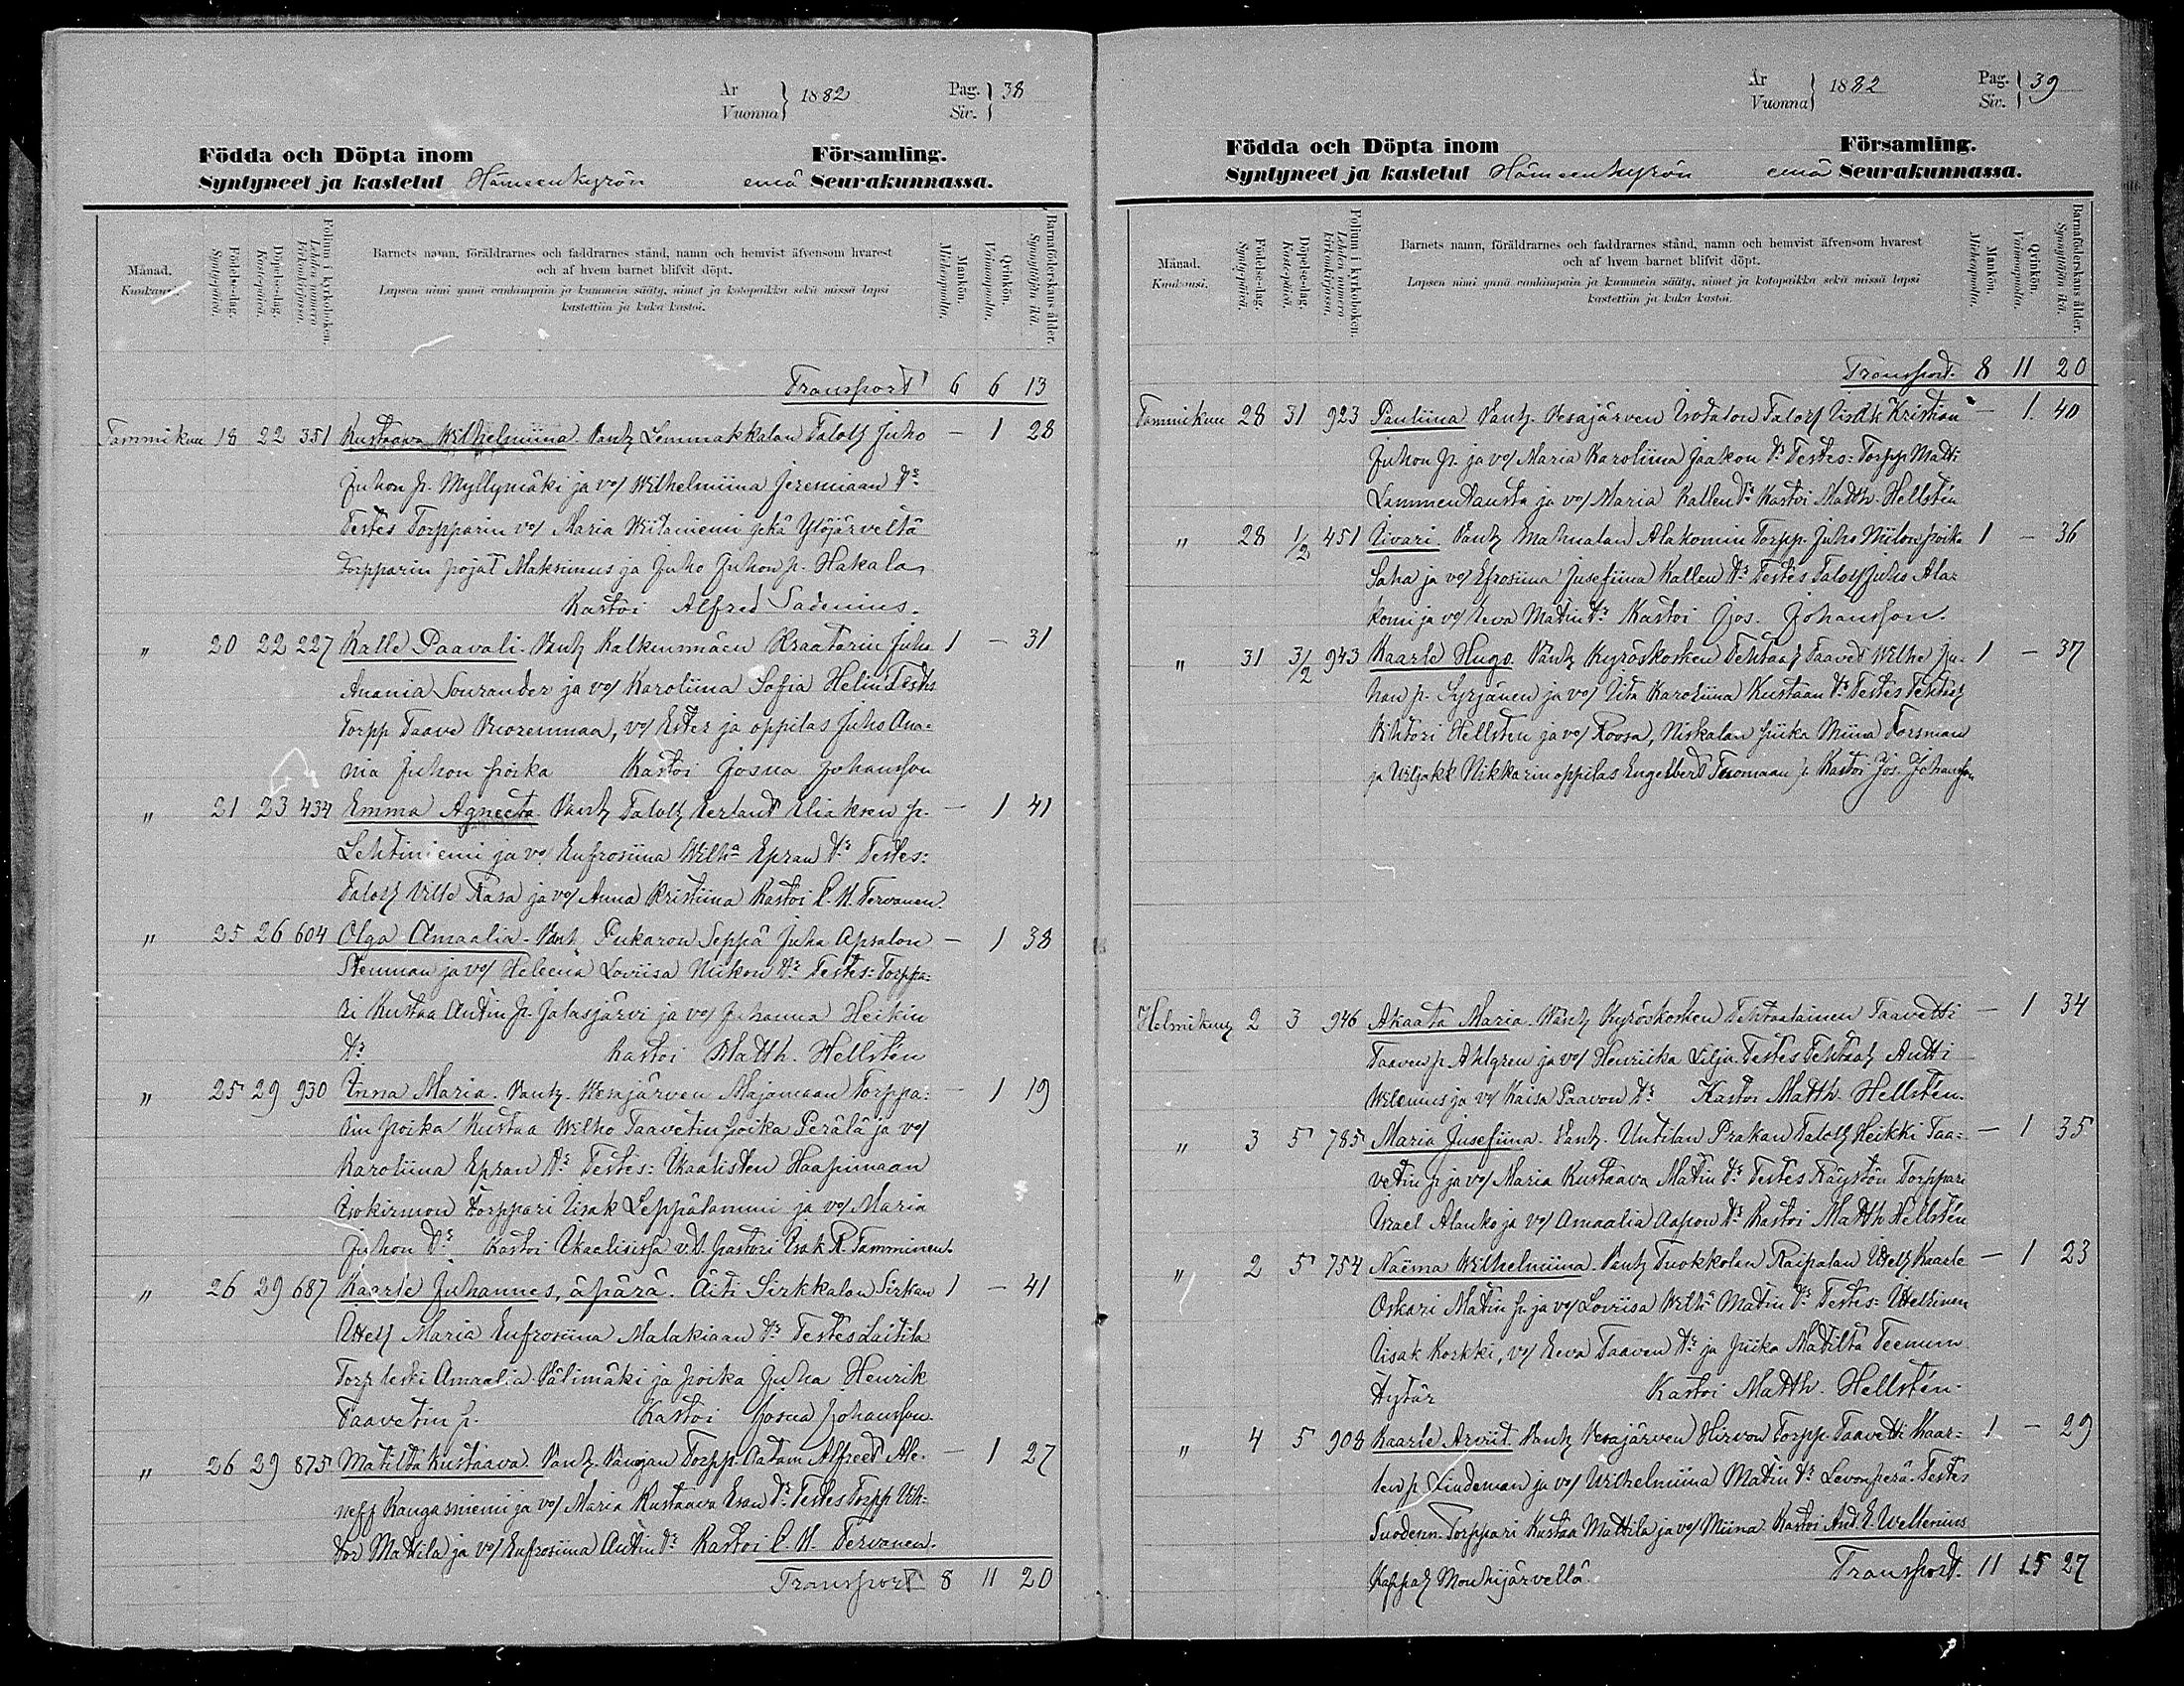 År Vuonna } 1882 Pag. Siv. } 38
Födda och Döpta inom Församling.
Syntyneet ja kastetut Hämeenkyrön emä Seurakunnassa.
Månad. Kuukausi.
Födelse-dag. Syntypäivä.
Döpelse-dag. Kastepäivä.
Folium i kyrkoboken. Lehden numero kirkonkirjassa.
Barnets namn, föräldrarnes och faddrarnes stånd, namn och hemvist äfvensom hvarest
och af hvem barnet blifvit döpt.
Lapsen nimi ynnä vanhimpain ja kummein sääty, nimet ja kotopaikka sekä missä lapsi
kastettiin ja kuka kastoi.
Mankön. Miehenpuolia.
Qvinkön. Vaimonpuolia.
Barnaföderskans ålder. Synnyttäjän ikä.
Transport 6 6 13
Tammikuu 18 22 351 Kustaava Wilhelmiina. Vanh Lemmakkalan Taloll Juho — 1 28
Juhon p. Myllymäki ja vo/ Wilhelmiina Jeremiaan tr
Testes Torpparin vo/ Maria Wiitaniemi sekä Ylöjärveltä
Torpparin pojat Maksimus ja Juho Juhon p. Hakala
Kastoi Alfred Sadenius.
" 20 22 227 Kalle Paavali. Vanh Kalkunmäen Kraatarin Juho 1 — 31
Anania Sourander ja vo/ Karoliina Sofia Helin Testes
Torpp Taave Vuorenmaa, vo/ Ester ja oppilas Juho Ana-
nia Juhon poika Kastoi Josua Johansson
" 21 23 434 Emma Agneeta Vanh Taloll Eerland Eliaksen p. — 1 41
Lehtiniemi ja vo/ Eufrosiina Wilha Epran tr Testes:
Taloll Ville Rasa ja vo/ Anna Kristiina Kastoi C. N. Tervanen.
" 25 26 604 Olga Amaalia. Vanh Pukaron Seppä Juha Apsalon — 1 38
Stenman ja vo/ Heleena Loviisa Niikon tr Testes: Torppa-
ri Kustaa Antin p. Jalasjärvi ja vo/ Johanna Heikin
tr Kastoi Matth. Hellstén
" 25 29 930 Iinna Maria. Vanh. Wesajärven Majamaan Torppa- — 1 19
rin poika Kustaa Wilho Taavetin poika Perälä ja vo/
Karoliina Epran tr Testes: Ikaalisten Haapimaan
Isokirmon Torppari Iisak Leppälammi ja vo/ Maria
Juhon tr Kastoi Ikaalisissa v.t. pastori Isak R. Tamminen.
" 26 29 687 Kaarle Juhannes, äpärä. Äiti Sirkkalan Sirkan 1 — 41
Ittell Maria Eufrosiina Malakiaan tr Testes Laitila
Torp leski Amaalia Välimäki ja poika Juha Henrik
Taavetin p. Kastoi Josua Johansson.
" 26 29 875 Matilda Kustaava. Vanh. Vanajan Torpp. Aatam Alfred Ale- — 1 27
neff Kangasniemi ja vo/ Maria Kustaava Esan tr Testes Torpp Vih-
tor Mattila ja vo/ Eufrosiina Antin tr Kastoi C. N. Tervanen.
Transport 8 11 20
År Vuonna } 1882 Pag. Siv. } 39
Födda och Döpta inom Församling.
Syntyneet ja kastetut Hämeenkyrön emä Seurakunnassa.
Månad. Kuukausi.
Födelse-dag. Syntypäivä.
Döpelse-dag. Kastepäivä.
Folium i kyrkoboken. Lehden numero kirkonkirjassa.
Barnets namn, föräldrarnes och faddrarnes stånd, namn och hemvist äfvensom hvarest
och af hvem barnet blifvit döpt.
Lapsen nimi ynnä vanhimpain ja kummein sääty, nimet ja kotopaikka sekä missä lapsi
kastettiin ja kuka kastoi.
Mankön. Miehenpuolia.
Qvinkön. Vaimonpuolia.
Barnaföderskans ålder. Synnyttäjän ikä.
Transport. 8 11 20
Tammikuu 28 31 923 Pauliina Vanh. Vesajärven Isotalon Taloll Iisak Kristian — 1 40
Juhon p. ja vo/ Maria Karoliina Jaakon tr Testes: Torpp Matti
Lammentausta ja vo/ Maria Kallen tr Kastoi Matth. Hellstén
" 28 1/2 451 Iivari. Vanh Mahnalan Alakomin Torpp. Juho Niilon poika 1 — 36
Saha ja vo/ Efrosiina Jusefiina Kallen tr Testes Taloll Juho Ala-
komi ja vo/ Eeva Matin tr Kastoi Jos. Johansson.
" 31 3/2 943 Kaarle Hugo. Vanh Kyröskosken Tehtaal Taavet Wilhe Ju- 1 — 37
han p. Syrjänen ja vo/ Iita Karoliina Kustaan tr Testes Tehtaal
Vihtori Hellsten ja vo/ Roosa, Niskalan piika Miina Forsman
ja Viljakk Nikkarin oppilas Engelbert Tuomaan p Kastoi Jos. Johansson
Helmikuu 2 3 946 Akaata Maria. Vanh Kyröskosken Tehtaalainen Taavetti — 1 34
Taaven p Ahlgren ja vo/ Henriika Lilja Testes Tehtaal Antti
Welenius ja vo/ Kaisa Paavon tr Kastoi Matth. Hellstén.
" 3 5 785 Maria Jusefiina. Vanh. Untilan Prakan Taloll Heikki Taa- — 1 35
vetin p ja vo/ Maria Kustaava Matin tr Testes Räystön Torppari
Israel Alanko ja vo/ Amaalia Aapon tr Kastoi Matth Hellstén
" 2 5 754 Naëma Wilhelmiina. Vanh Tuokkolan Raipalan Ittell Kaarle — 1 23
Oskari Matin p. ja vo/ Loviisa Wilha Matin tr Testes: Ittellinen
Iisak Korkki, vo/ Eeva Taaven tr ja piika Matilta Teemun
tytär Kastoi Matth. Hellstén.
" 4 5 908 Kaarle Arviit Vanh Vesajärven Hirvon Torpp. Taavetti Kaar- 1 — 29
len p Lindeman ja vo/ Wilhelmiina Matin tr Levonperä. Testes
Suodenn. Torppari Kustaa Mattila ja vo/ Miina. Kastoi And. E. Wellenius
Kappal Mouhijärvellä. Transport. 11 15 27